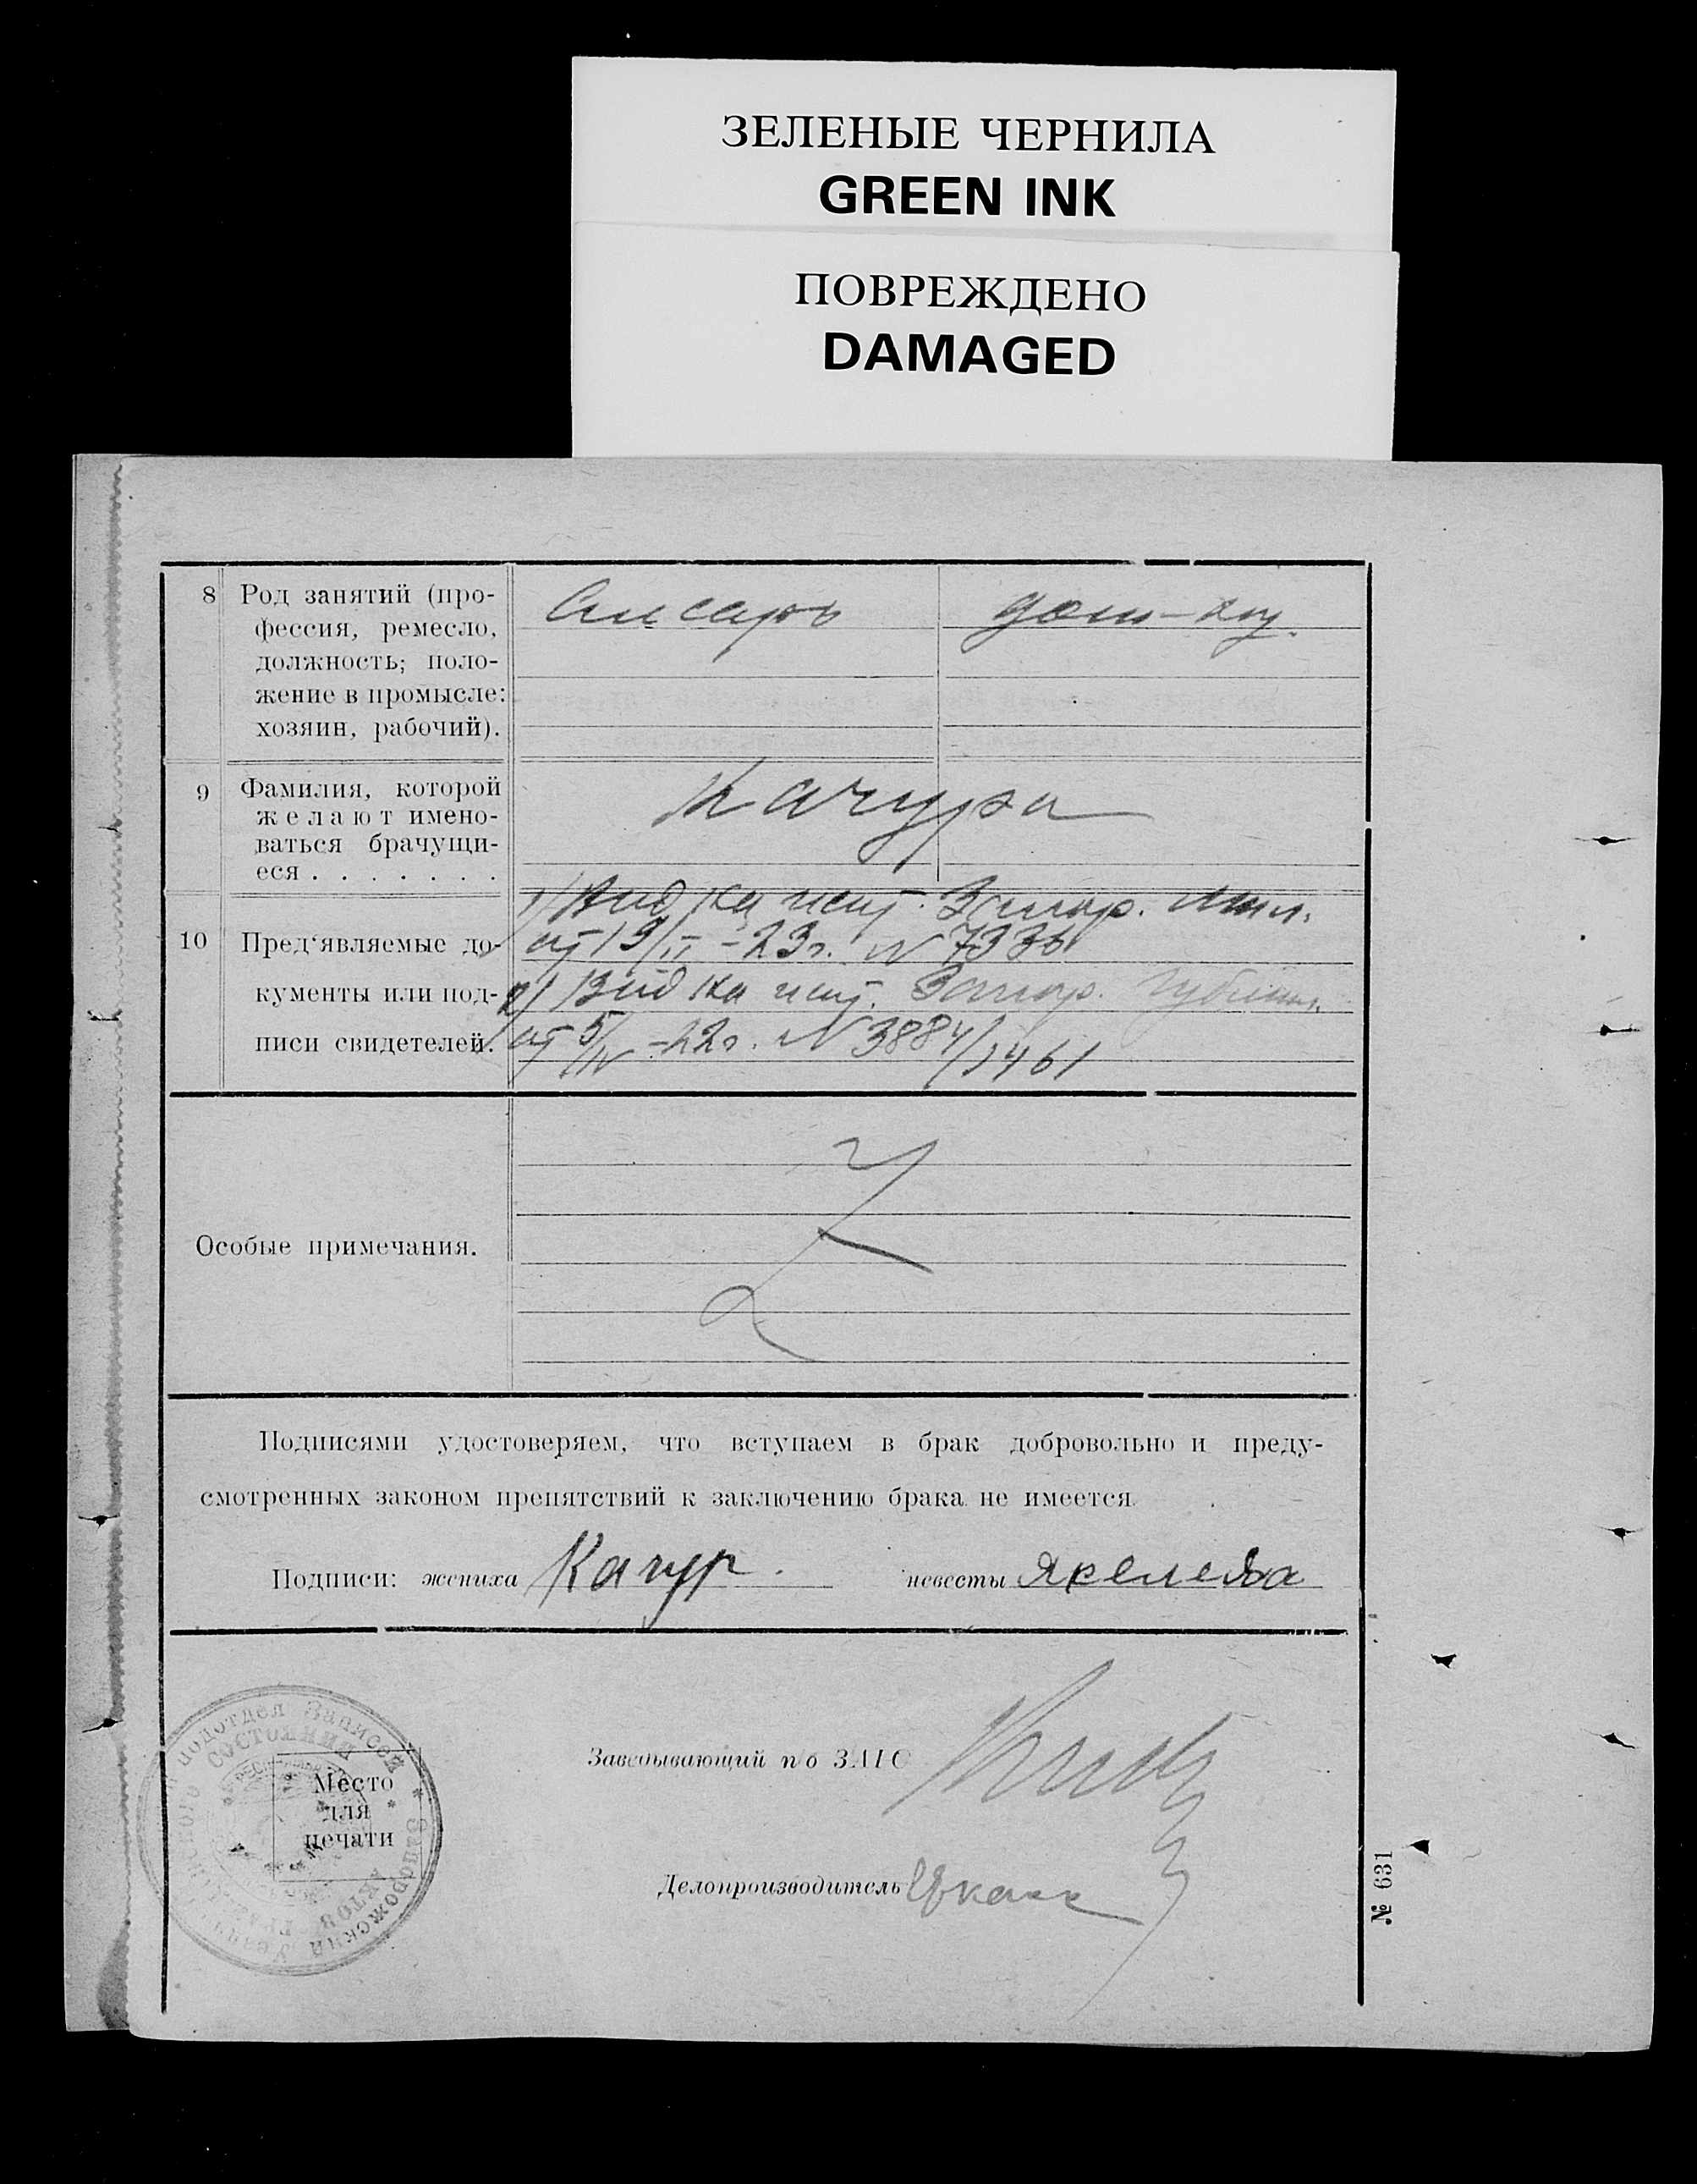 ЗЕЛЕНЫЕ ЧЕРНИЛА
GREEN INK
ПОВРЕЖДЕНО
DAMAGED
8 Род занятий (про-
фессия, ремесло,
должность; поло-
жение в промысле:
хозяин, рабочий).
Слесарь
дом-хоз.
9 Фамилия, которой
желают имено-
ваться брачущи-
еся . . . . . . .
Качура
10 Пред'являемые до-
кументы или под-
писи свидетелей.
1) Вид на жит. Запор. Мил.
от 13/II-23г. N 7336
2) Вид на жит. Запор.
от 5/IV-22г. N 3884/1461
Особые примечания.
Подписями удостоверяем, что вступаем в брак добровольно и преду-
смотренных законом препятствий к заключению брака не имеется.
Подписи: жениха Качур. невесты
Заведывающий п/о ЗАГС
Делопроизводитель
Место
для
печати
подотдел Записей
Состояния
Актов
Запорожский
№ 631